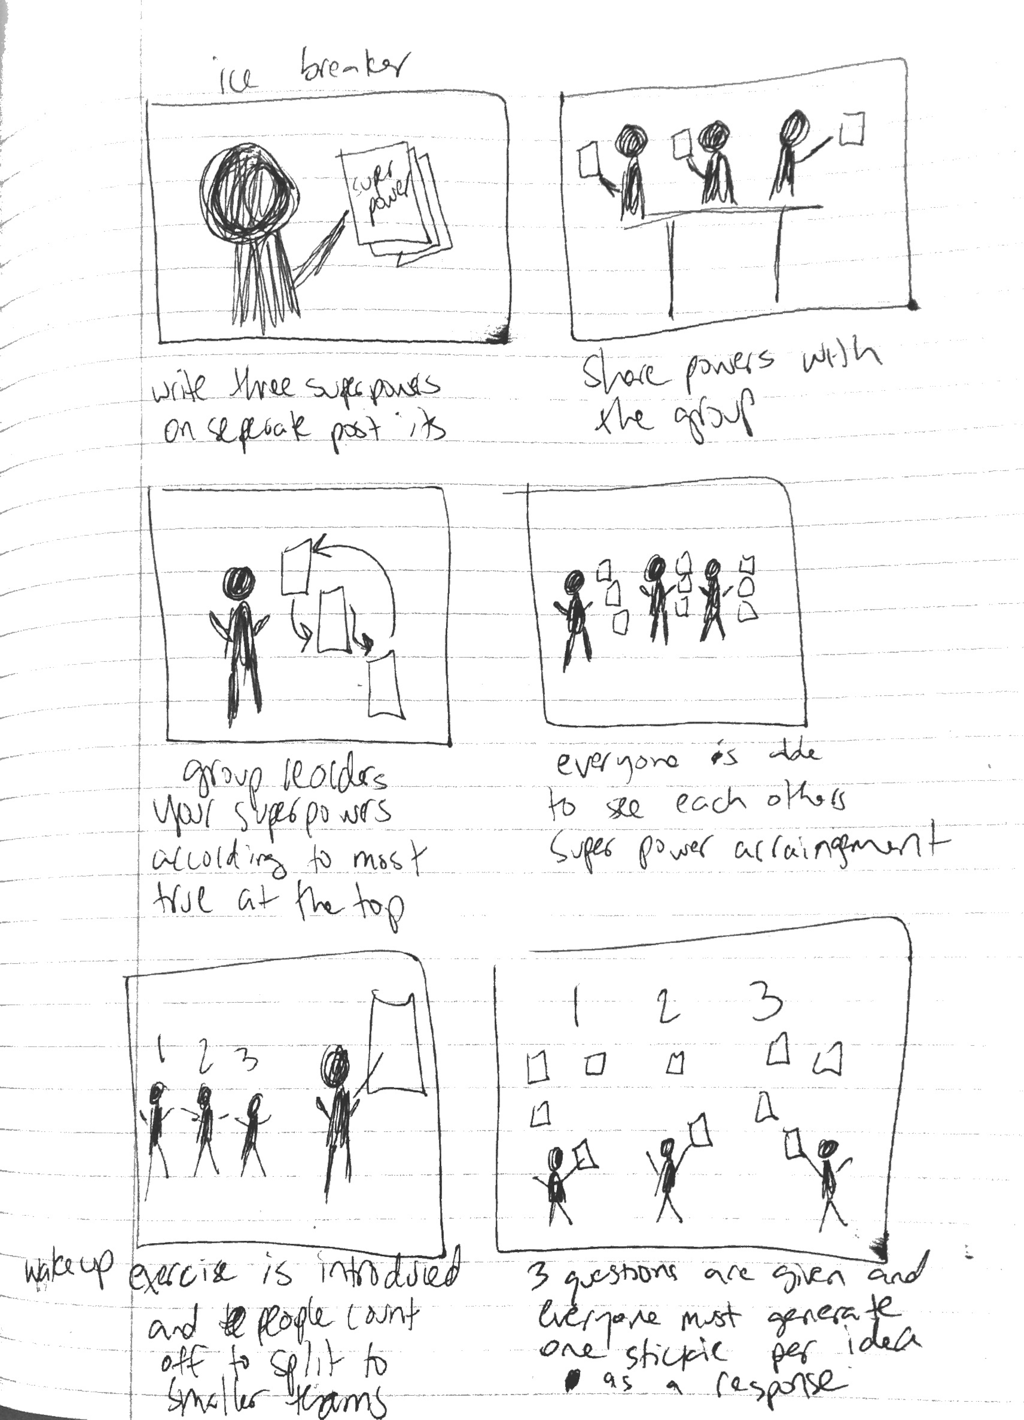 ice breaker
super
power
write three superpowers
on seperate post its
share powers with
the group
group reorders
your superpowers
according to most
true at the top
everyone is able
to see each others
super power arraingement
1 2 3
wakeup exercise is introduced
and people count
off to split to
smaller teams
1 2 3
3 questions are given and
everyone must generate
one stickie per idea
as a response